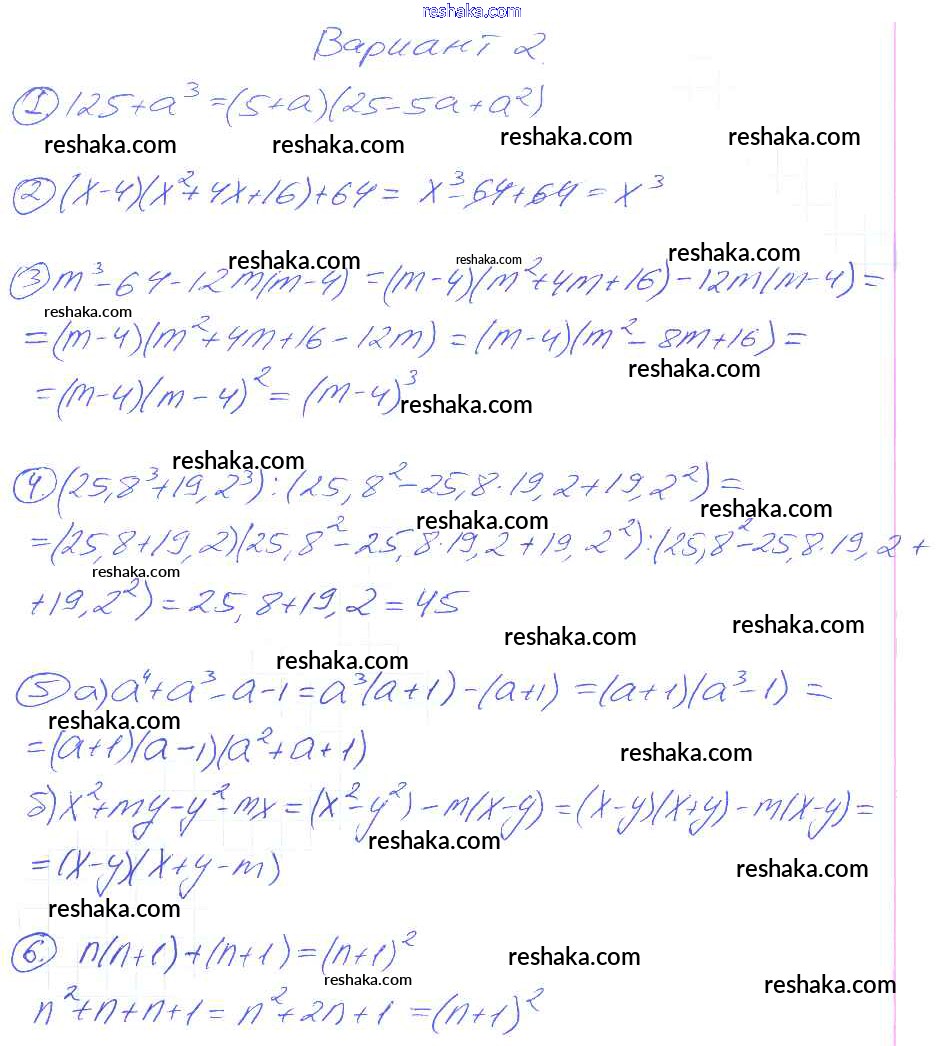 reshaka.com
Вариант 2.
① 125+a³=(5+a)(25-5a+a²)
reshaka.com reshaka.com reshaka.com reshaka.com
② (x-4)(x²+4x+16)+64= x³-64+64=x³
reshaka.com reshaka.com reshaka.com
③ m³-64-12m(m-4)=(m-4)(m²+4m+16)-12m(m-4)=
reshaka.com
=(m-4)(m²+4m+16-12m)=(m-4)(m²-8m+16)=
reshaka.com
=(m-4)(m-4)²=(m-4)³
reshaka.com
reshaka.com
④ (25,8³+19,2³):(25,8²-25,8·19,2+19,2²)=
reshaka.com reshaka.com
=(25,8+19,2)(25,8²-25,8·19,2+19,2²):(25,8²-25,8·19,2+
reshaka.com
+19,2²)=25,8+19,2=45
reshaka.com reshaka.com
reshaka.com
⑤ а) a⁴+a³-a-1=a³(a+1)-(a+1)=(a+1)(a³-1)=
reshaka.com
=(a+1)(a-1)(a²+a+1)
reshaka.com
б) x²+my-y²-mx=(x²-y²)-m(x-y)=(x-y)(x+y)-m(x-y)=
reshaka.com
=(x-y)(x+y-m)
reshaka.com
reshaka.com
⑥. n(n+1)+(n+1)=(n+1)²
reshaka.com reshaka.com reshaka.com
n²+n+n+1=n²+2n+1=(n+1)²